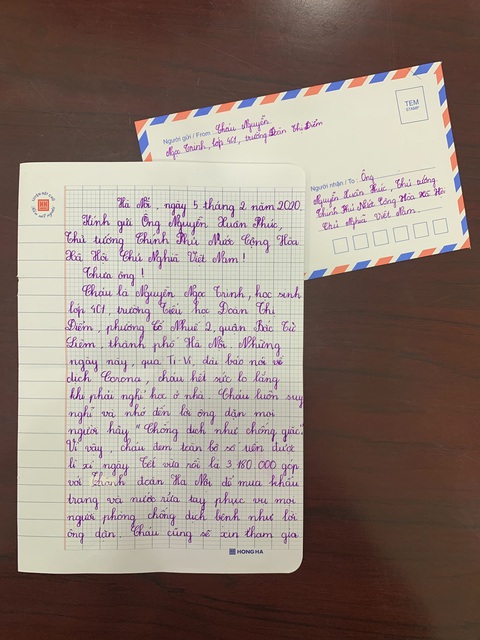 Người gửi / From Cháu Nguyễn
Ngọc Trinh, lớp 4C1, trường Đoàn Thị Điểm
TEM
STAMP
Người nhận / To Ông
Nguyễn Xuân Phúc, Thủ tướng
Chính Phủ Nước Cộng Hòa Xã Hội
Chủ Nghĩa Việt Nam.
Hà Nội, ngày 5 tháng 2 năm 2020
Kính gửi Ông Nguyễn Xuân Phúc,
Thủ tướng Chính Phủ Nước Cộng Hòa
Xã Hội Chủ Nghĩa Việt Nam!
Thưa ông!
Cháu là Nguyễn Ngọc Trinh, học sinh
lớp 4C1, trường Tiểu học Đoàn Thị
Điểm, phường Cổ Nhuế 2, quận Bắc Từ
Liêm, thành phố Hà Nội. Những
ngày này, qua Ti Vi, đài báo nói về
dịch Corona, cháu hết sức lo lắng
khi phải nghỉ học ở nhà. Cháu luôn suy
nghĩ và nhớ đến lời ông dặn mọi
người hãy "Chống dịch như chống giặc".
Vì vậy, cháu đem toàn bộ số tiền được
lì xì ngày Tết vừa rồi là 3.180.000 góp
với Thành đoàn Hà Nội để mua khẩu
trang và nước rửa tay phục vụ mọi
người phòng chống dịch bệnh như lời
ông dặn. Cháu cũng sẽ xin tham gia
HONG HA